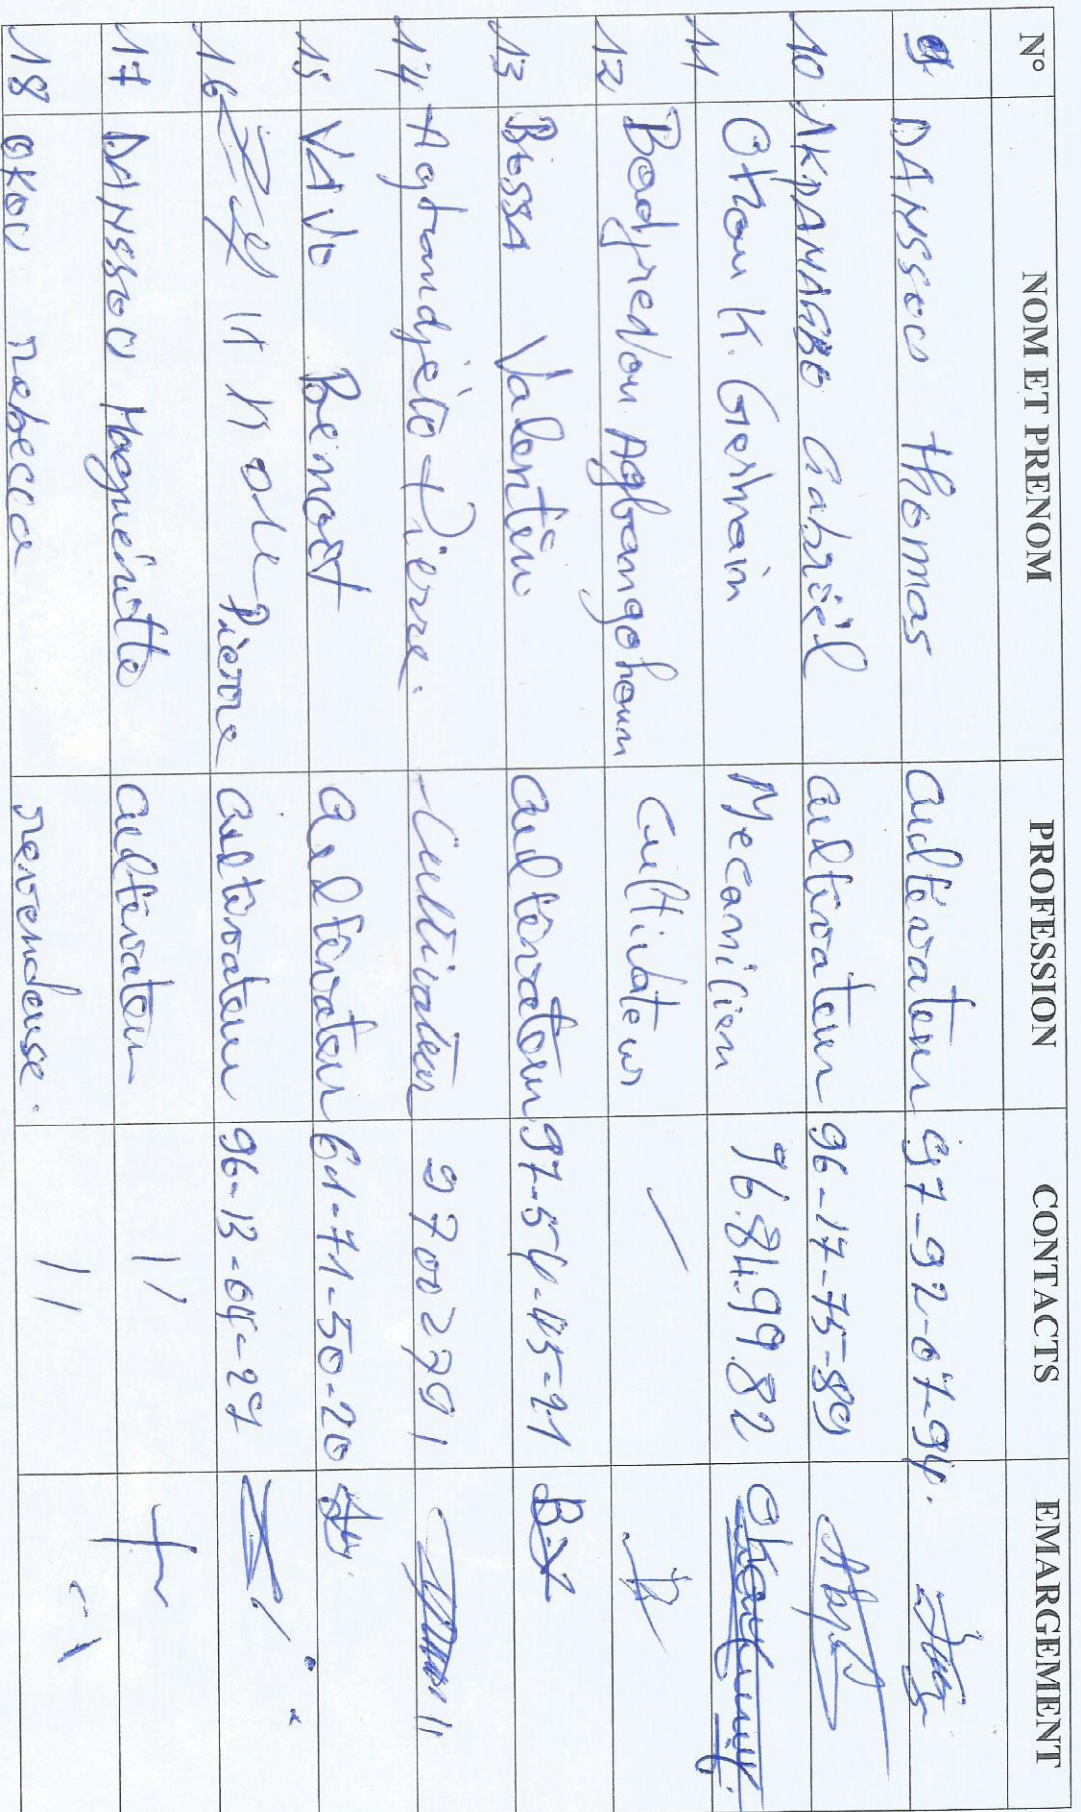 N° NOM ET PRENOM PROFESSION CONTACTS EMARGEMENT
9 DANSSOU Thomas Cultivateur 97-92-07-94.
10 AKPAMAGBO Gabriel cultivateur 96-17-75-89
11 Okou K. Germain Mecanicien 96.84.99.82
12 Badjredou Agbangohoun Cultivateur /
13 BiossA Valentin cultivateur 97-54-45-21
14 Agbandjèto Pierre. Cultivateur 97002791
15 VAVo Benoit cultivateur 61-71-50-20
16 Pierre cultivateur 96-13-04-27
17 DANSSOU Margueritte cultivateur 11
18 OKOU rebecca revendeuse. 11